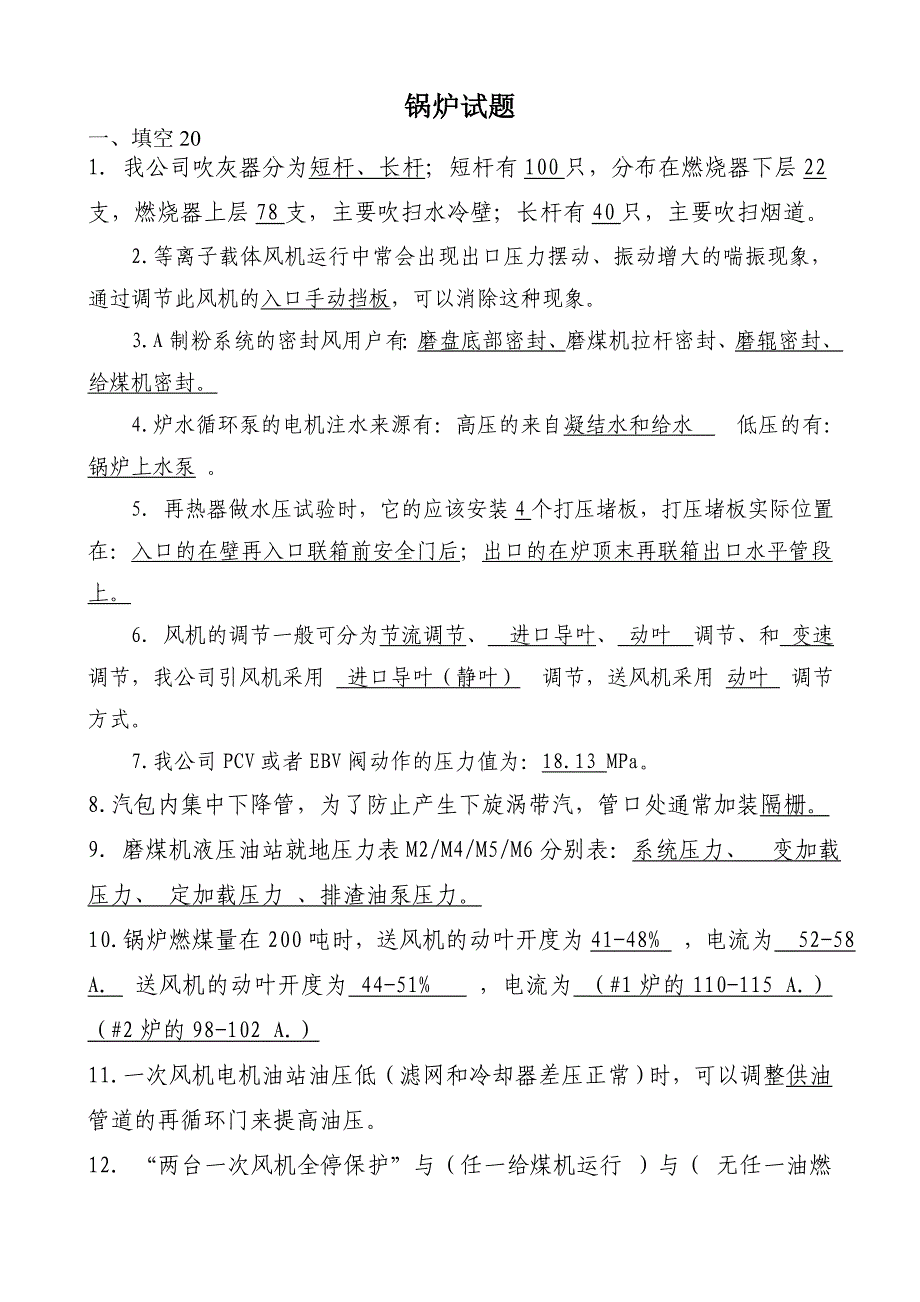 锅炉试题
一、填空20
1. 我公司吹灰器分为短杆、长杆；短杆有100只，分布在燃烧器下层22
支，燃烧器上层78支，主要吹扫水冷壁；长杆有40只，主要吹扫烟道。
2.等离子载体风机运行中常会出现出口压力摆动、振动增大的喘振现象，
通过调节此风机的入口手动挡板，可以消除这种现象。
3.A制粉系统的密封风用户有：磨盘底部密封、磨煤机拉杆密封、磨辊密封、
给煤机密封。
4.炉水循环泵的电机注水来源有：高压的来自凝结水和给水 低压的有：
锅炉上水泵 。
5. 再热器做水压试验时，它的应该安装4个打压堵板，打压堵板实际位置
在：入口的在壁再入口联箱前安全门后；出口的在炉顶末再联箱出口水平管段
上。
6. 风机的调节一般可分为节流调节、 进口导叶、 动叶 调节、和 变速
调节，我公司引风机采用 进口导叶（静叶） 调节，送风机采用 动叶 调节
方式。
7.我公司PCV或者EBV阀动作的压力值为：18.13MPa。
8.汽包内集中下降管，为了防止产生下旋涡带汽，管口处通常加装隔栅。
9. 磨煤机液压油站就地压力表M2/M4/M5/M6分别表：系统压力、 变加载
压力、 定加载压力 、排渣油泵压力。
10.锅炉燃煤量在200吨时，送风机的动叶开度为41-48% ，电流为 52-58
A. 送风机的动叶开度为 44-51% ，电流为 （#1炉的110-115 A.）
（#2炉的98-102 A.）
11.一次风机电机油站油压低（滤网和冷却器差压正常）时，可以调整供油
管道的再循环门来提高油压。
12. “两台一次风机全停保护”与（任一给煤机运行 ）与（ 无任一油燃